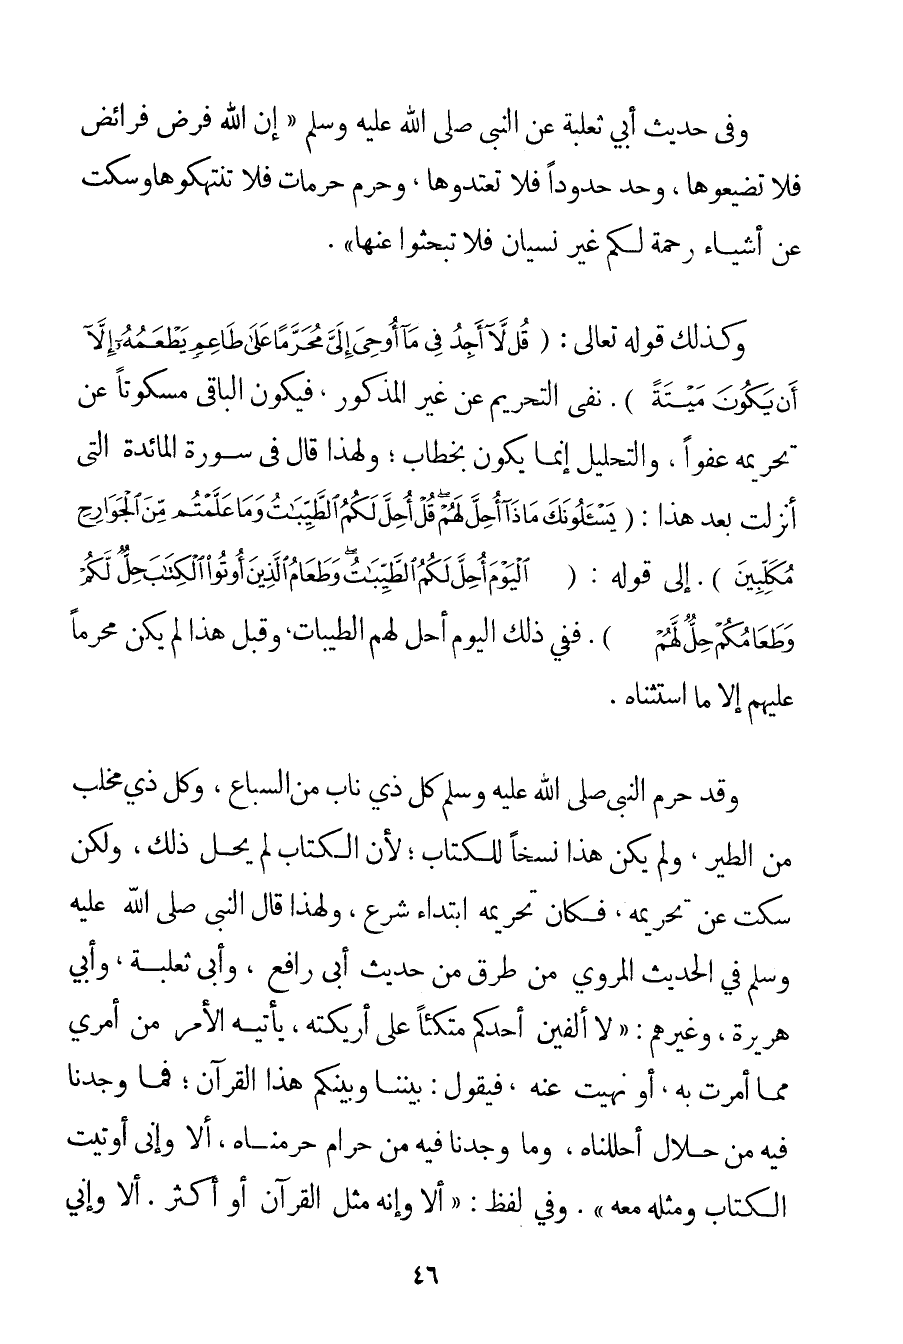 وفى حديث أبي ثعلبة عن النبى صلى الله عليه وسلم « إن الله فرض فرائض
فلا تضيعوها ، وحد حدوداً فلا تعتدوها ، وحرم حرمات فلا تنتهكوها وسكت
عن أشياء رحمة لكم غير نسيان فلا تبحثوا عنها» .
وكذلك قوله تعالى : ( قُل لَّآ أَجِدُ فِى مَآ أُوحِىَ إِلَىَّ مُحَرَّمًا عَلَىٰ طَاعِمٍ يَطْعَمُهُۥٓ إِلَّآ
أَن يَكُونَ مَيْتَةً ) . نفى التحريم عن غير المذكور ، فيكون الباقى مسكوتاً عن
تحريمه عفواً ، والتحليل إنما يكون بخطاب ؛ ولهذا قال فى سورة المائدة التى
أنزلت بعد هذا : ( يَسْـَٔلُونَكَ مَاذَآ أُحِلَّ لَهُمْ ۖ قُلْ أُحِلَّ لَكُمُ ٱلطَّيِّبَـٰتُ وَمَا عَلَّمْتُم مِّنَ ٱلْجَوَارِحِ
مُكَلِّبِينَ ) . إلى قوله : ( ٱلْيَوْمَ أُحِلَّ لَكُمُ ٱلطَّيِّبَـٰتُ ۖ وَطَعَامُ ٱلَّذِينَ أُوتُوا۟ ٱلْكِتَـٰبَ حِلٌّ لَّكُمْ
وَطَعَامُكُمْ حِلٌّ لَّهُمْ ) . ففي ذلك اليوم أحل لهم الطيبات، وقبل هذا لم يكن محرماً
عليهم إلا ما استثناه .
وقد حرم النبى صلى الله عليه وسلم كل ذي ناب من السباع ، وكل ذي مخلب
من الطير ، ولم يكن هذا نسخاً للكتاب ؛ لأن الكتاب لم يحل ذلك ، ولكن
سكت عن تحريمه ، فكان تحريمه ابتداء شرع ، ولهذا قال النبى صلى الله عليه
وسلم في الحديث المروي من طرق من حديث أبى رافع ، وأبى ثعلبة ، وأبي
هريرة ، وغيرهم : « لا ألفين أحدكم متكئاً على أريكته ، يأتيه الأمر من أمري
مما أمرت به ، أو نهيت عنه ، فيقول : بيننا وبينكم هذا القرآن ؛ فما وجدنا
فيه من حلال أحللناه ، وما وجدنا فيه من حرام حرمناه ، ألا وإنى أوتيت
الكتاب ومثله معه » . وفي لفظ : « ألا وإنه مثل القرآن أو أكثر . ألا وإني
٤٦